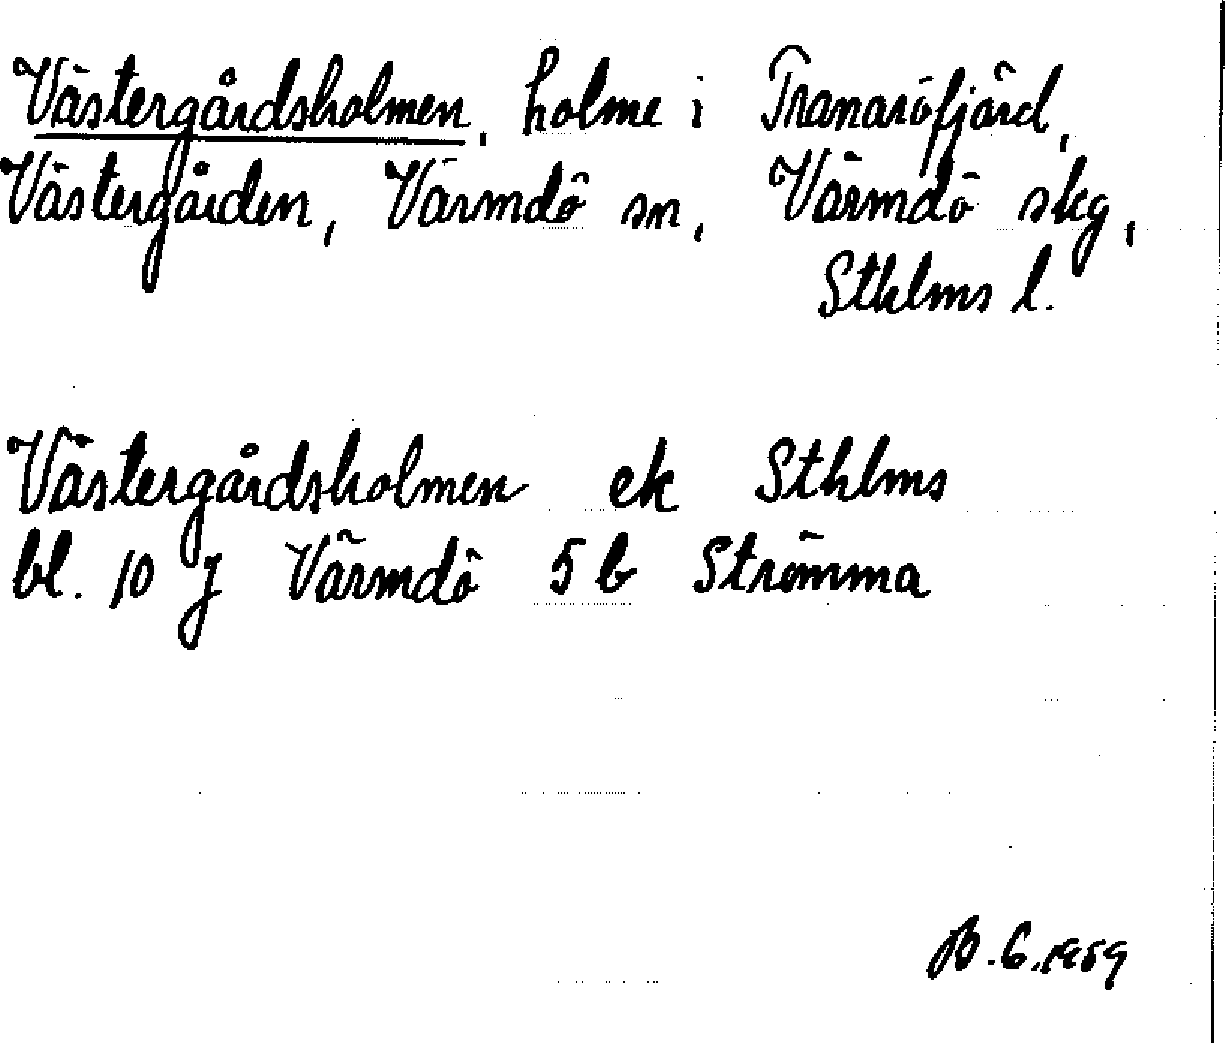 Västergårdsholmen, holme i Tranaröfjärd,
Västergården, Värmdö sn, Värmdö skg,
Sthlms l.
Västergårdsholmen ek Sthlms
bl. 10 J Värmdö 5 b Strömma
B.G.1959